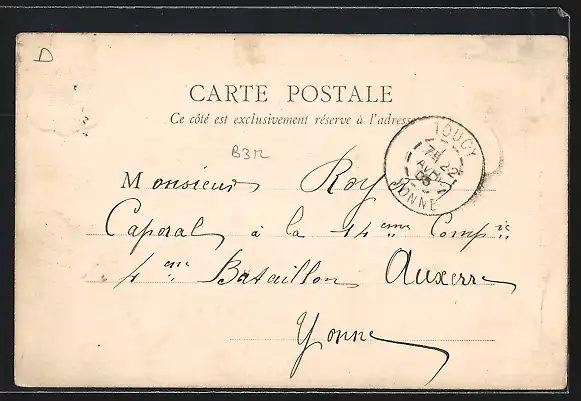 D
CARTE POSTALE
Ce côté est exclusivement réservé à l'adresse
TOUCY
22
AVRIL
03
YONNE
B312
Monsieur Roy
Caporal à la 14eme Compie
4eme Bataillon Auxerre
Yonne